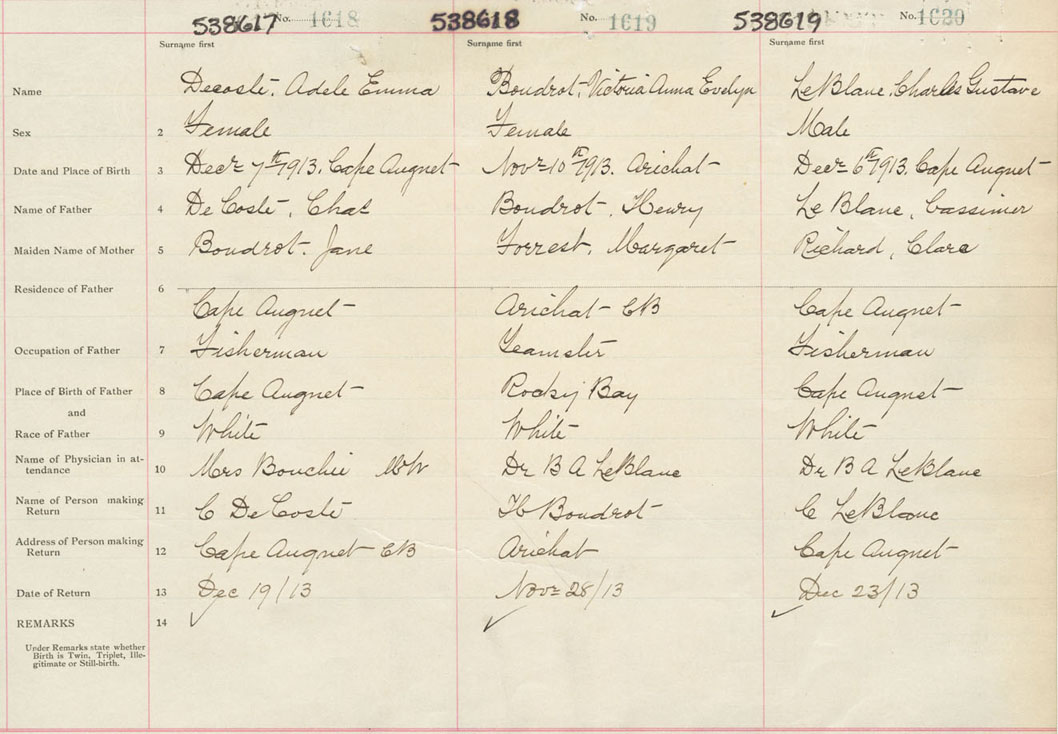 538617 No. 1618 538618 No. 1619 538619 No. 1620
Surname first Surname first Surname first
Name Decoste, Adele Emma Boudrot, Victoria Anna Evelyn LeBlanc, Charles Gustave
Sex 2 Female Female Male
Date and Place of Birth 3 Decr 7th 1913. Cape Auguet Novr 10th 1913. Arichat Decr 6th 1913. Cape Auguet
Name of Father 4 DeCoste, Chas Boudrot, Henry Le Blanc, Cassimer
Maiden Name of Mother 5 Boudrot. Jane Forrest, Margaret Richard, Clara
Residence of Father 6
Cape Auguet Arichat CB Cape Auguet
Occupation of Father 7 Fisherman Teamster Fisherman
Place of Birth of Father 8 Cape Auguet Rocky Bay Cape Auguet
and
Race of Father 9 White White White
Name of Physician in at-
tendance 10 Mrs Bouchie MW Dr B A LeBlanc Dr B A LeBlanc
Name of Person making
Return 11 C DeCoste H Boudrot C LeBlanc
Address of Person making
Return 12 Cape Auguet CB Arichat Cape Auguet
Date of Return 13 Dec 19/13 Novr 28/13 Dec 23/13
REMARKS 14
Under Remarks state whether
Birth is Twin, Triplet, Ille-
gitimate or Still-birth.